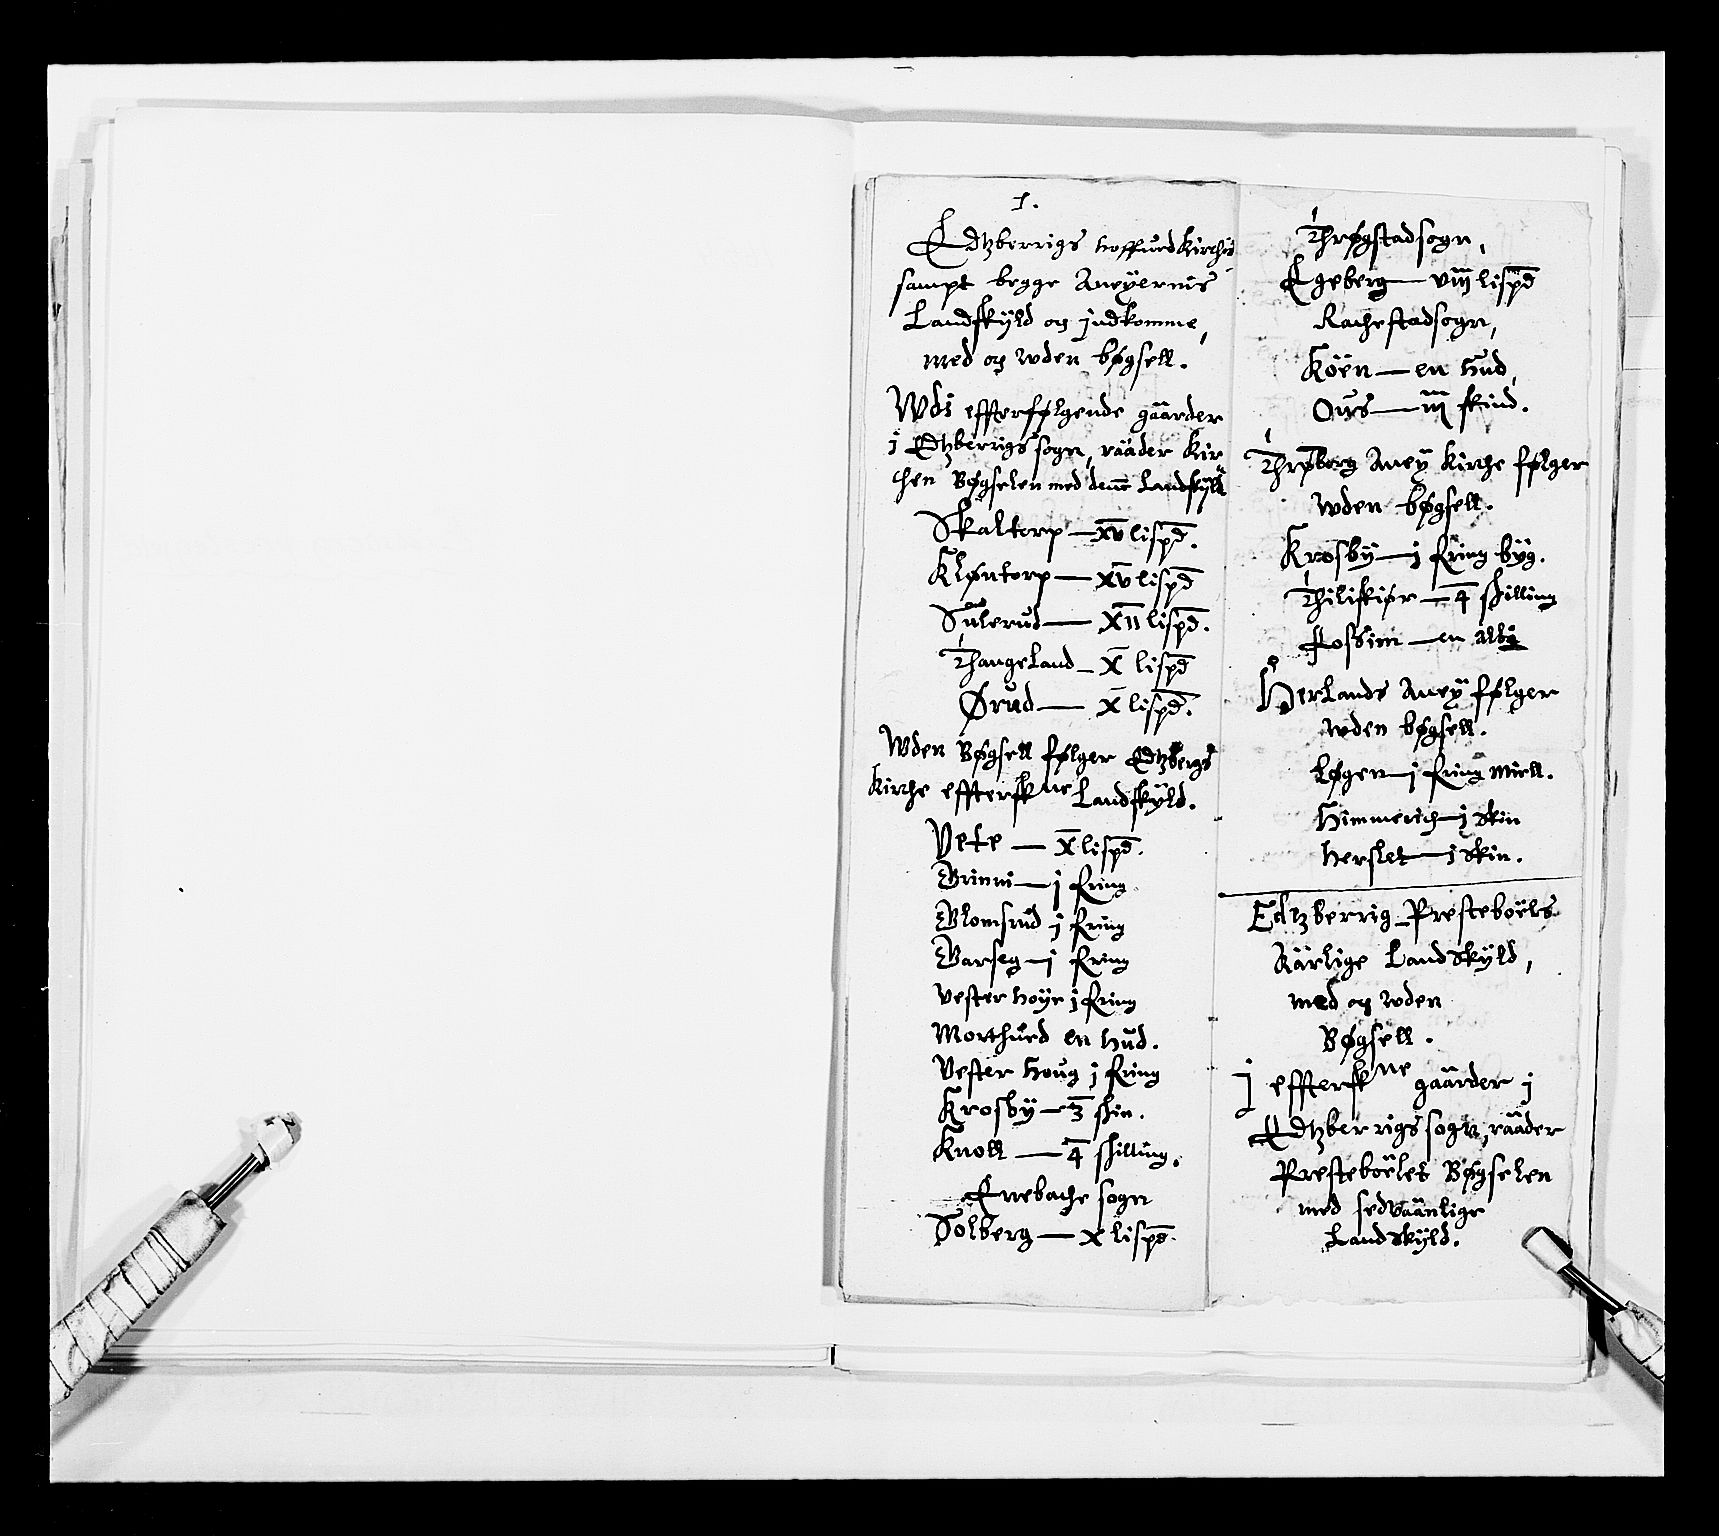 1.
Edtzberrigs hoffuedKirches
sampt begge Anexernis
Landskÿld og jndkomme,
med og wden bøgsell.
Wdi effterfølgende gaarder
i Edtzberrigs sogn, raader Kir
chen Bøgselen med denne Landskÿld
Skaltorp — xv lispd.
Kløntorp — xv lispd
Sulerud — xii lispd.
Thangeland — x lispd
Ørud — x lispd.
Wden Bøgsell følger Edtzbergs
Kirche effterskne Landskÿld.
Vete — x lispd.
Brinni — j fring
Blomsrud j fring
Barseg — j fring
Vester høye j fring
Morthued en hud.
Vester houg j fring
Krosbÿ — 3 skin.
Knoll — 4 skilling.
Enebache sogn
Solberg — x lispd.
Thrøgstadsogn,
Egeberg — viij lispd
Rachestadsogn,
Köen — en hud,
Ous — iij skind.
Thrøborg Anex Kirche følger
wden bøgsell.
Krosbÿ — j fring bÿg.
Thiliskiør — 4 skilling
Fossim — en
Herlands Anex følger
wden bøgsell.
Løgen — j fring miell.
Himmerich — j skin
herslet — j skin.
Edtzberrig Presteboëls
Aarlige Landskÿld,
med og wden
Bøgsell.
J effterskne gaarder j
Edtzberrigs sogn, raader
Presteboëlet Bøgselen
med sedvaanlige
Landskÿld.